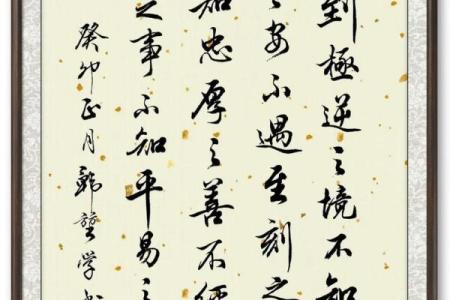 到極逆之境不知
之安不遇至刻之
知忠厚之善不經
之事不知平易之
癸卯正月韓